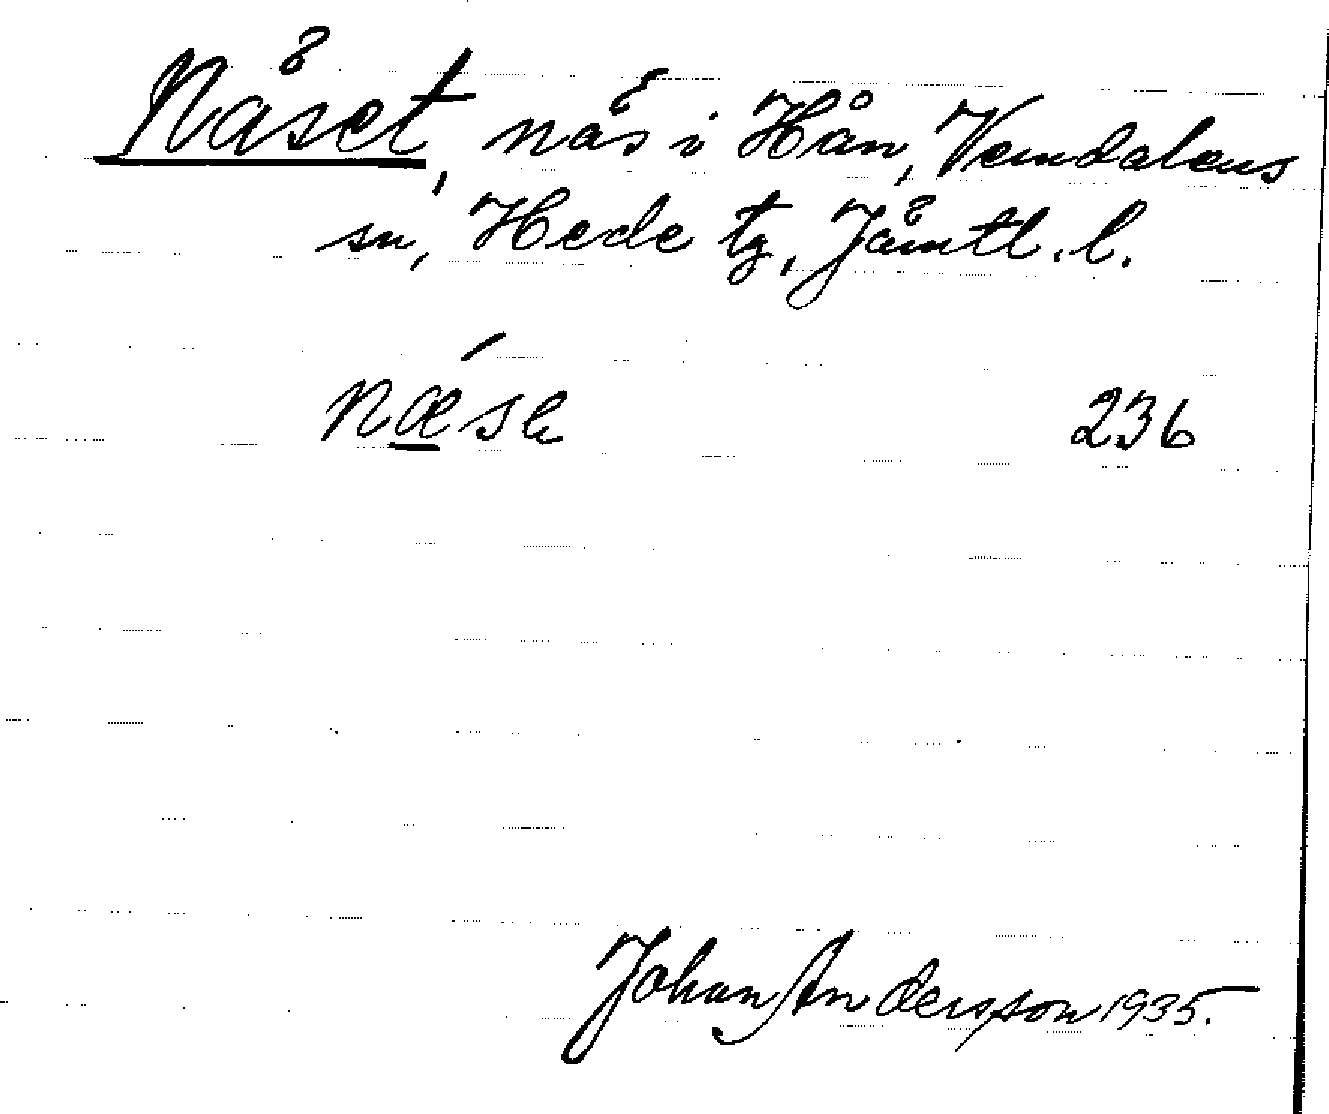 Näset, näs i Hån, Vemdalens
sn, Hede tg, Jämtl. l.
næ´sɐ 236
Johan Andersson 1935.